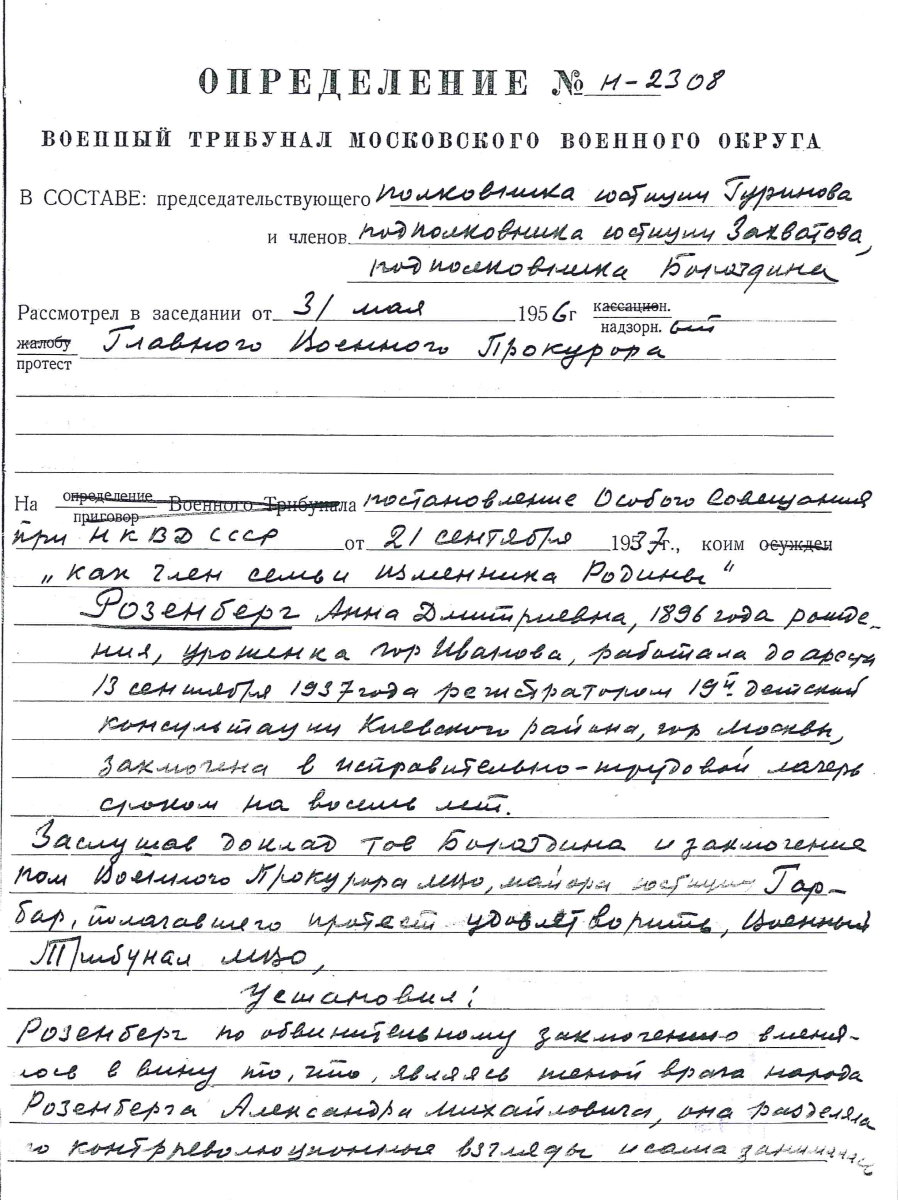 ОПРЕДЕЛЕНИЕ № н-2308
ВОЕННЫЙ ТРИБУНАЛ МОСКОВСКОГО ВОЕННОГО ОКРУГА
В СОСТАВЕ: председательствующего полковника юстиции Гуринова
и членов подполковника юстиции Захватова,
подполковника Бораздина
Рассмотрел в заседании от 31 мая 1956 г кассацион.
надзорн. ый
жалобу Главного Военного Прокурора
протест
На определение Военного Трибунала постановление Особого Совещания
приговор
при НКВД СССР от 21 сентября 1937г., коим осужден
„как член семьи изменника Родины"
Розенберг Анна Дмитриевна, 1896 года рожде-
ния, уроженка гор Иванова, работала до ареста
13 сентября 1937 года регистратором 19й детской
консультации Киевского района, гор Москвы,
заключена в исправительно-трудовой лагерь
сроком на восемь лет.
Заслушав доклад тов Бораздина и заключение
пом Военного Прокурора МВО, майора юстиции Гор-
бар, полагавшего протест удовлетворить, Военный
Трибунал МВО,
Установил:
Розенберг по обвинительному заключению вменя-
лось в вину то, что, являясь женой врага народа
Розенберга Александра Михайловича, она разделяла
го контрреволюционные взгляды и сама занималась